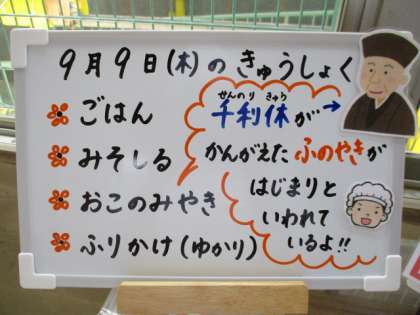 9月9日(木)のきゅうしょく
ごはん
みそしる
おこのみやき
ふりかけ(ゆかり)
せんのりきゅう
千利休が→
かんがえたふのやきが
はじまりと
いわれて
いるよ!!